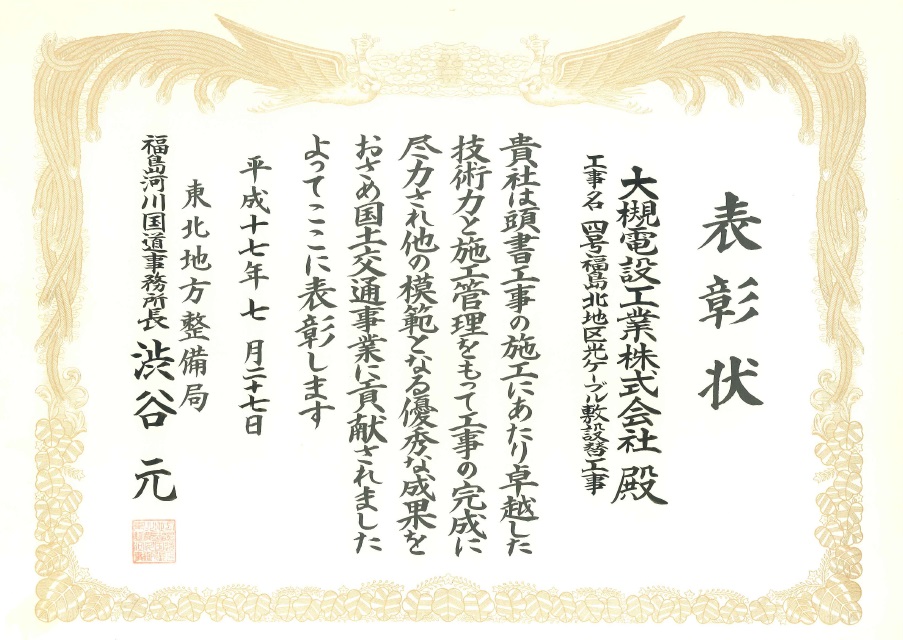 表彰状
大槻電設工業株式会社 殿
工事名 四号福島北地区光ケーブル敷設替工事
貴社は頭書工事の施工にあたり卓越した
技術力と施工管理をもって工事の完成に
尽力され他の模範となる優秀な成果を
おさめ国土交通事業に貢献されました
よってここに表彰します
平成十七年七月二十七日
東北地方整備局
福島河川国道事務所長 渋谷 元